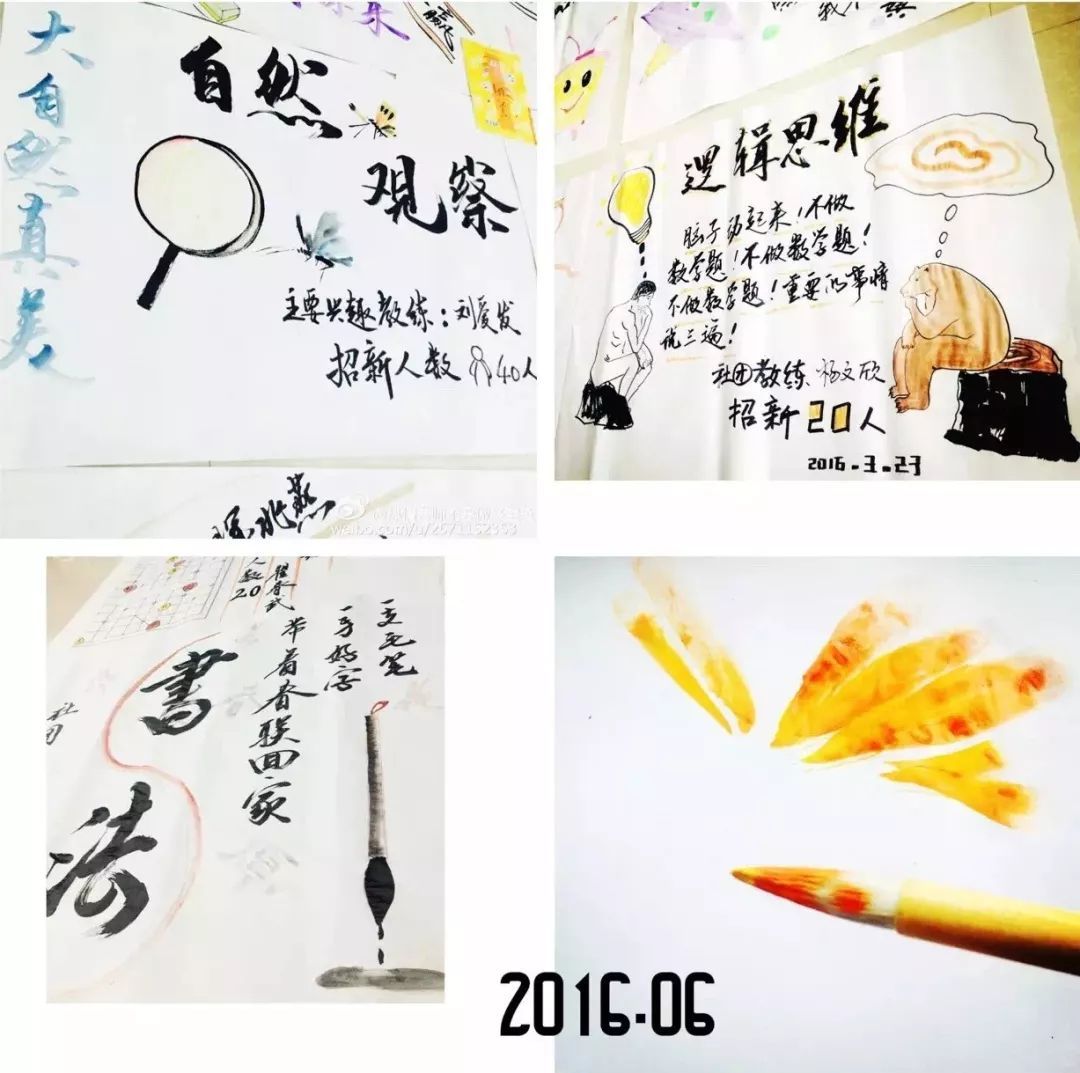 大自然真美
自然
观察
主要兴趣教练：刘爱发
招新人数 40人
燕
逻辑思维
脑子动起来！不做
数学题！不做数学题！
不做数学题！重要的事情
说三遍！
社团教练、杨文欣
招新20人
2016.3.23
一支毛笔
一手好字
带着春联回家
人数20
書法
社团
2016.06